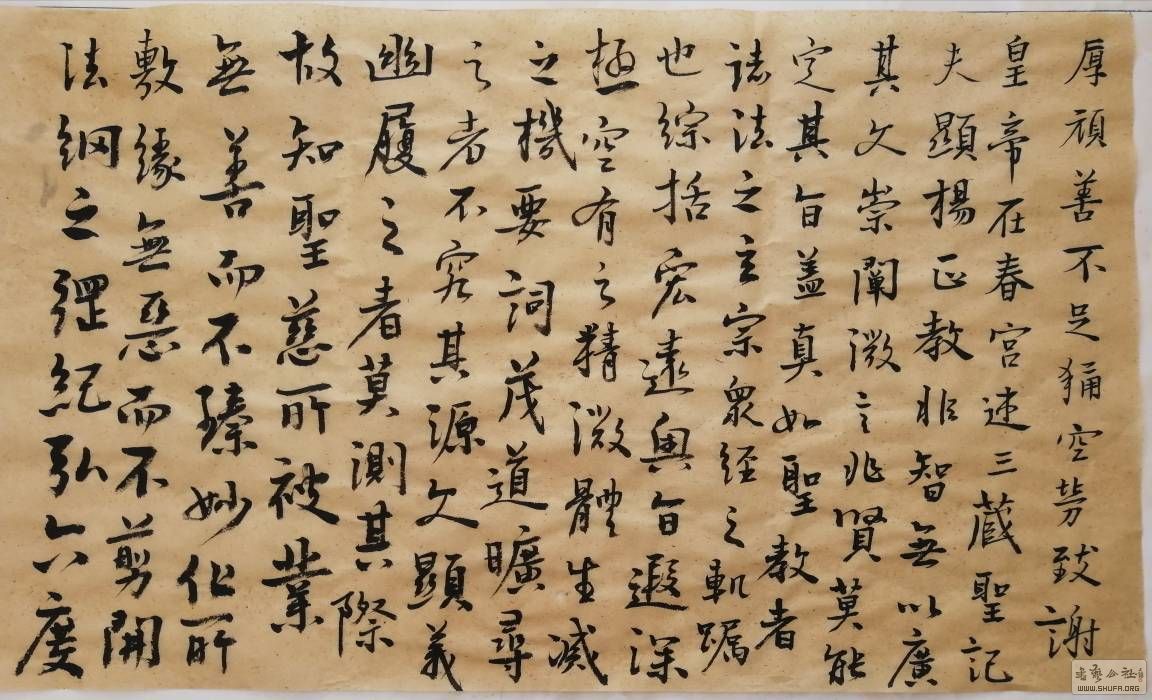 厚顏善不足稱空勞致謝
皇帝在春宮述三藏聖記
夫顯揚正教非智無以廣
其文崇闡微言非賢莫能
定其旨蓋真如聖教者
諸法之玄宗眾經之軌躅
也綜括宏遠奧旨遐深
極空有之精微體生滅
之機要詞茂道曠尋
之者不究其源文顯義
幽履之者莫測其際
故知聖慈所被業
無善而不臻妙化所
敷緣無惡而不剪開
法網之綱紀弘六度
书艺公社
WWW.SHUFA.ORG